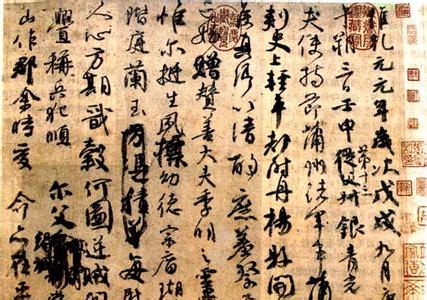 維乾元元年歲次戊戌九月庚
午朔三日壬申第十三銀青光
夫使持節蒲州諸軍事蒲
刺史上輕車都尉丹楊縣開
侯真卿以清酌庶羞祭
亡姪贈贊善大夫季明之靈
惟爾挺生夙標幼德宗廟瑚
階庭蘭玉方憑積善每慰
人心方期戩穀何圖逆賊間
釁稱兵犯順爾父
山作郡余時受命亦在平